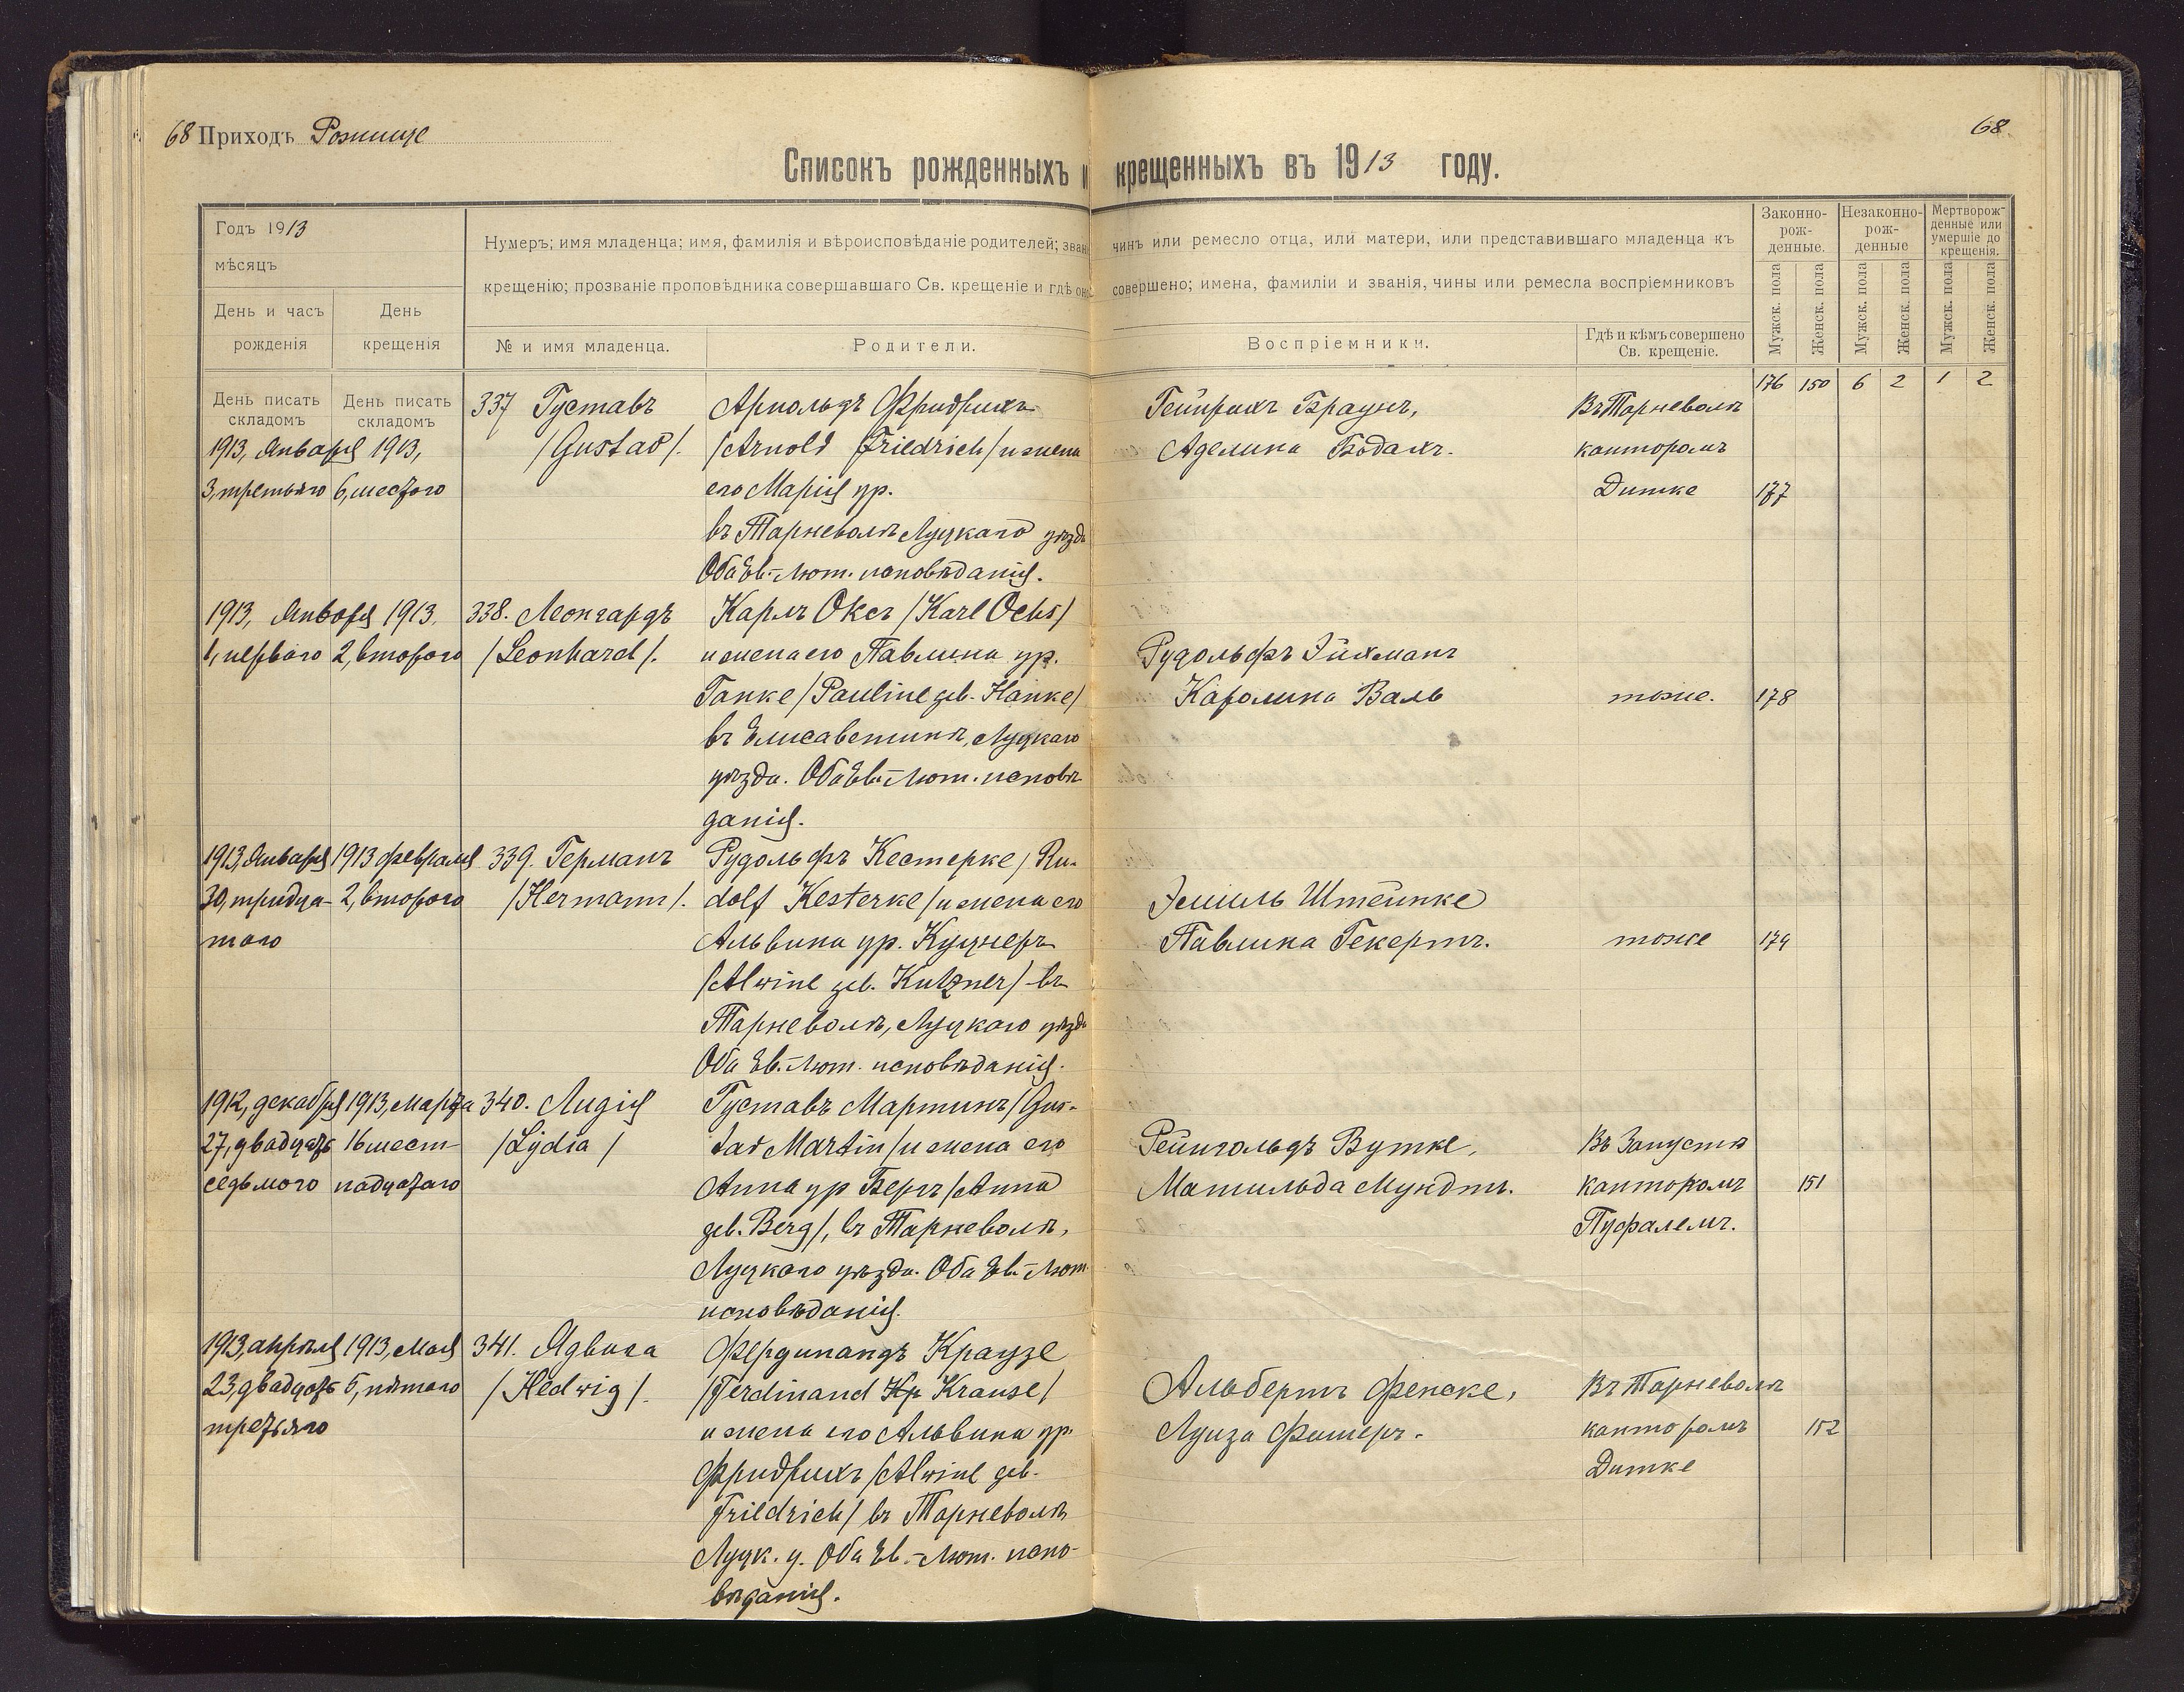 68 Приходъ Рожище
68.
Списокъ рожденныхъ и крещенныхъ въ 1913 году.
Годъ 1913
мѣсяцъ
День и часъ рожденія
День крещенія
Нумеръ; имя младенца; имя, фамилія и вѣроисповѣданіе родителей; званіе чинъ или ремесло отца, или матери, или представившаго младенца къ
крещенію; прозваніе проповѣдника совершавшаго Св. крещеніе и гдѣ оно совершено; имена, фамиліи и званія, чины или ремесла воспріемниковъ
№ и имя младенца.
Родители.
Воспріемники.
Гдѣ и кѣмъ совершено
Св. крещеніе.
Законно-
рож-
денные.
Незаконно-
рож-
денные
Мертворож-
денные или
умершіе до
крещенія.
Мужск. пола
Женск. пола
Мужск. пола
Женск. пола
Мужск. пола
Женск. пола
176 150 6 2 1 2
День писать
складомъ
День писать
складомъ
1913, Января 1913,
3, третьяго 6, шестого
337 Густавъ
/Gustav/.
Арнольдъ Фридрихъ
/Arnold Friedrich/ и жена
его Марія ур.
въ Тарневолѣ Луцкаго уѣзда
Оба Ев.-Лют. исповѣданія.
Гейнрихъ Браунъ,
Аделина Бодахъ.
Въ Тарневолѣ
канторомъ
Дитке
177
1913, Января 1913.
1, перваго 2, второго
338. Леонгардъ
/Leonhard/.
Карлъ Оксъ /Karl Ochs/
и жена его Павлина ур.
Ганке /Pauline geb. Hanke/
въ Елисаветинѣ, Луцкаго
уѣзда. Оба Ев.-Лют. исповѣ
данія.
Рудольфъ Эйхманъ
Каролина Валь
тоже.
178
1913, Января 1913 февраля
30, тридца- 2, второго
таго
339. Германъ
/Hermann/.
Рудольфъ Кестерке /Ru-
dolf Kesterke/ и жена его
Альвина ур. Куцнеръ
/Alwine geb. Kutzner/ въ
Тарневолѣ, Луцкаго уѣзда
Оба Ев.-Лют. исповѣданія.
Эмиль Штейнке
Павлина Гекертъ.
тоже
179
1912, декабря 1913, Марта
27, двадцать 16 шест-
седьмого надцатаго
340. Лидія
/Lydia/
Густавъ Мартинъ /Gus-
tav Martin/ и жена его
Анна ур Бергъ /Anna
geb. Berg/, въ Тарневолѣ,
Луцкаго уѣзда. Оба Ев.-Лют
исповѣданія.
Рейнгольдъ Вутке,
Матильда Мундтъ.
Въ Запустѣ
канторомъ
Пуфалемъ.
151
1913, апрѣля 1913, Мая
23, двадцать 5, пятаго
третьяго
341. Ядвига
/Hedwig/.
Фердинандъ Краузе
/Ferdinand Кр Krause/
и жена его Альвина ур.
Фридрихъ /Alwine geb.
Friedrich/ въ Тарневолѣ
Луцк. у. Оба Ев.-Лют. испо-
вѣданія.
Альбертъ Фенске,
Луиза Фишеръ.
Въ Тарневолѣ
канторомъ
Дитке
152